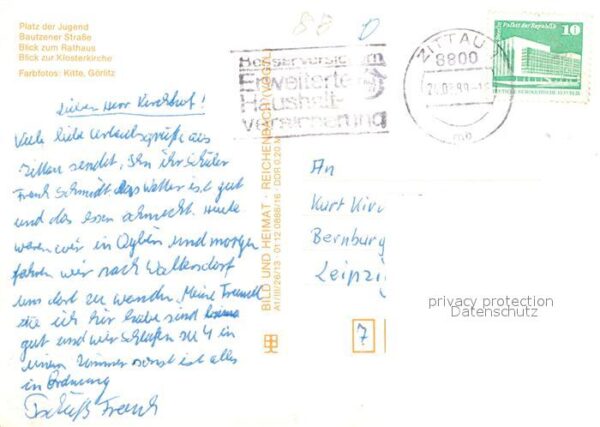 Platz der Jugend
Bautzener Straße
Blick zum Rathaus
Blick zur Klosterkirche
Farbfotos: Kitte, Görlitz
Lieber Herr Kirchhof!
Viele liebe Urlaubsgrüße aus
Zittau sendet Ihn ihr Schüler
Frank Schmidt. Das Wetter ist gut
und das essen schmeckt. Heute
waren wir in Oybin und morgen
fahren wir nach Waltersdorf
um dort zu wandern. Meine
die ich hir habe sind
gut und wir schlafen zu 4 in
einem Zimmer sonst ist alles
in Ordnung
Tschüß Frank
BILD UND HEIMAT · REICHENBACH (VOGTL)
A1/III/26/13 · 01 12 0888/16 · DDR 0,20 M
Erweiterte
Haushalt-
versicherung
ZITTAU
8800
Palast der Republik
10
DEUTSCHE DEMOKRATISCHE REPUBLIK
An
Kurt
Bernburg
Leipzi
7
privacy protection
Datenschutz